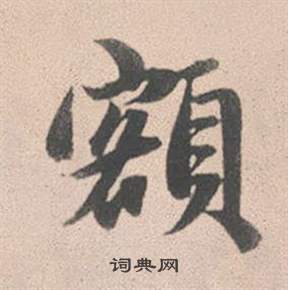 額
词典网